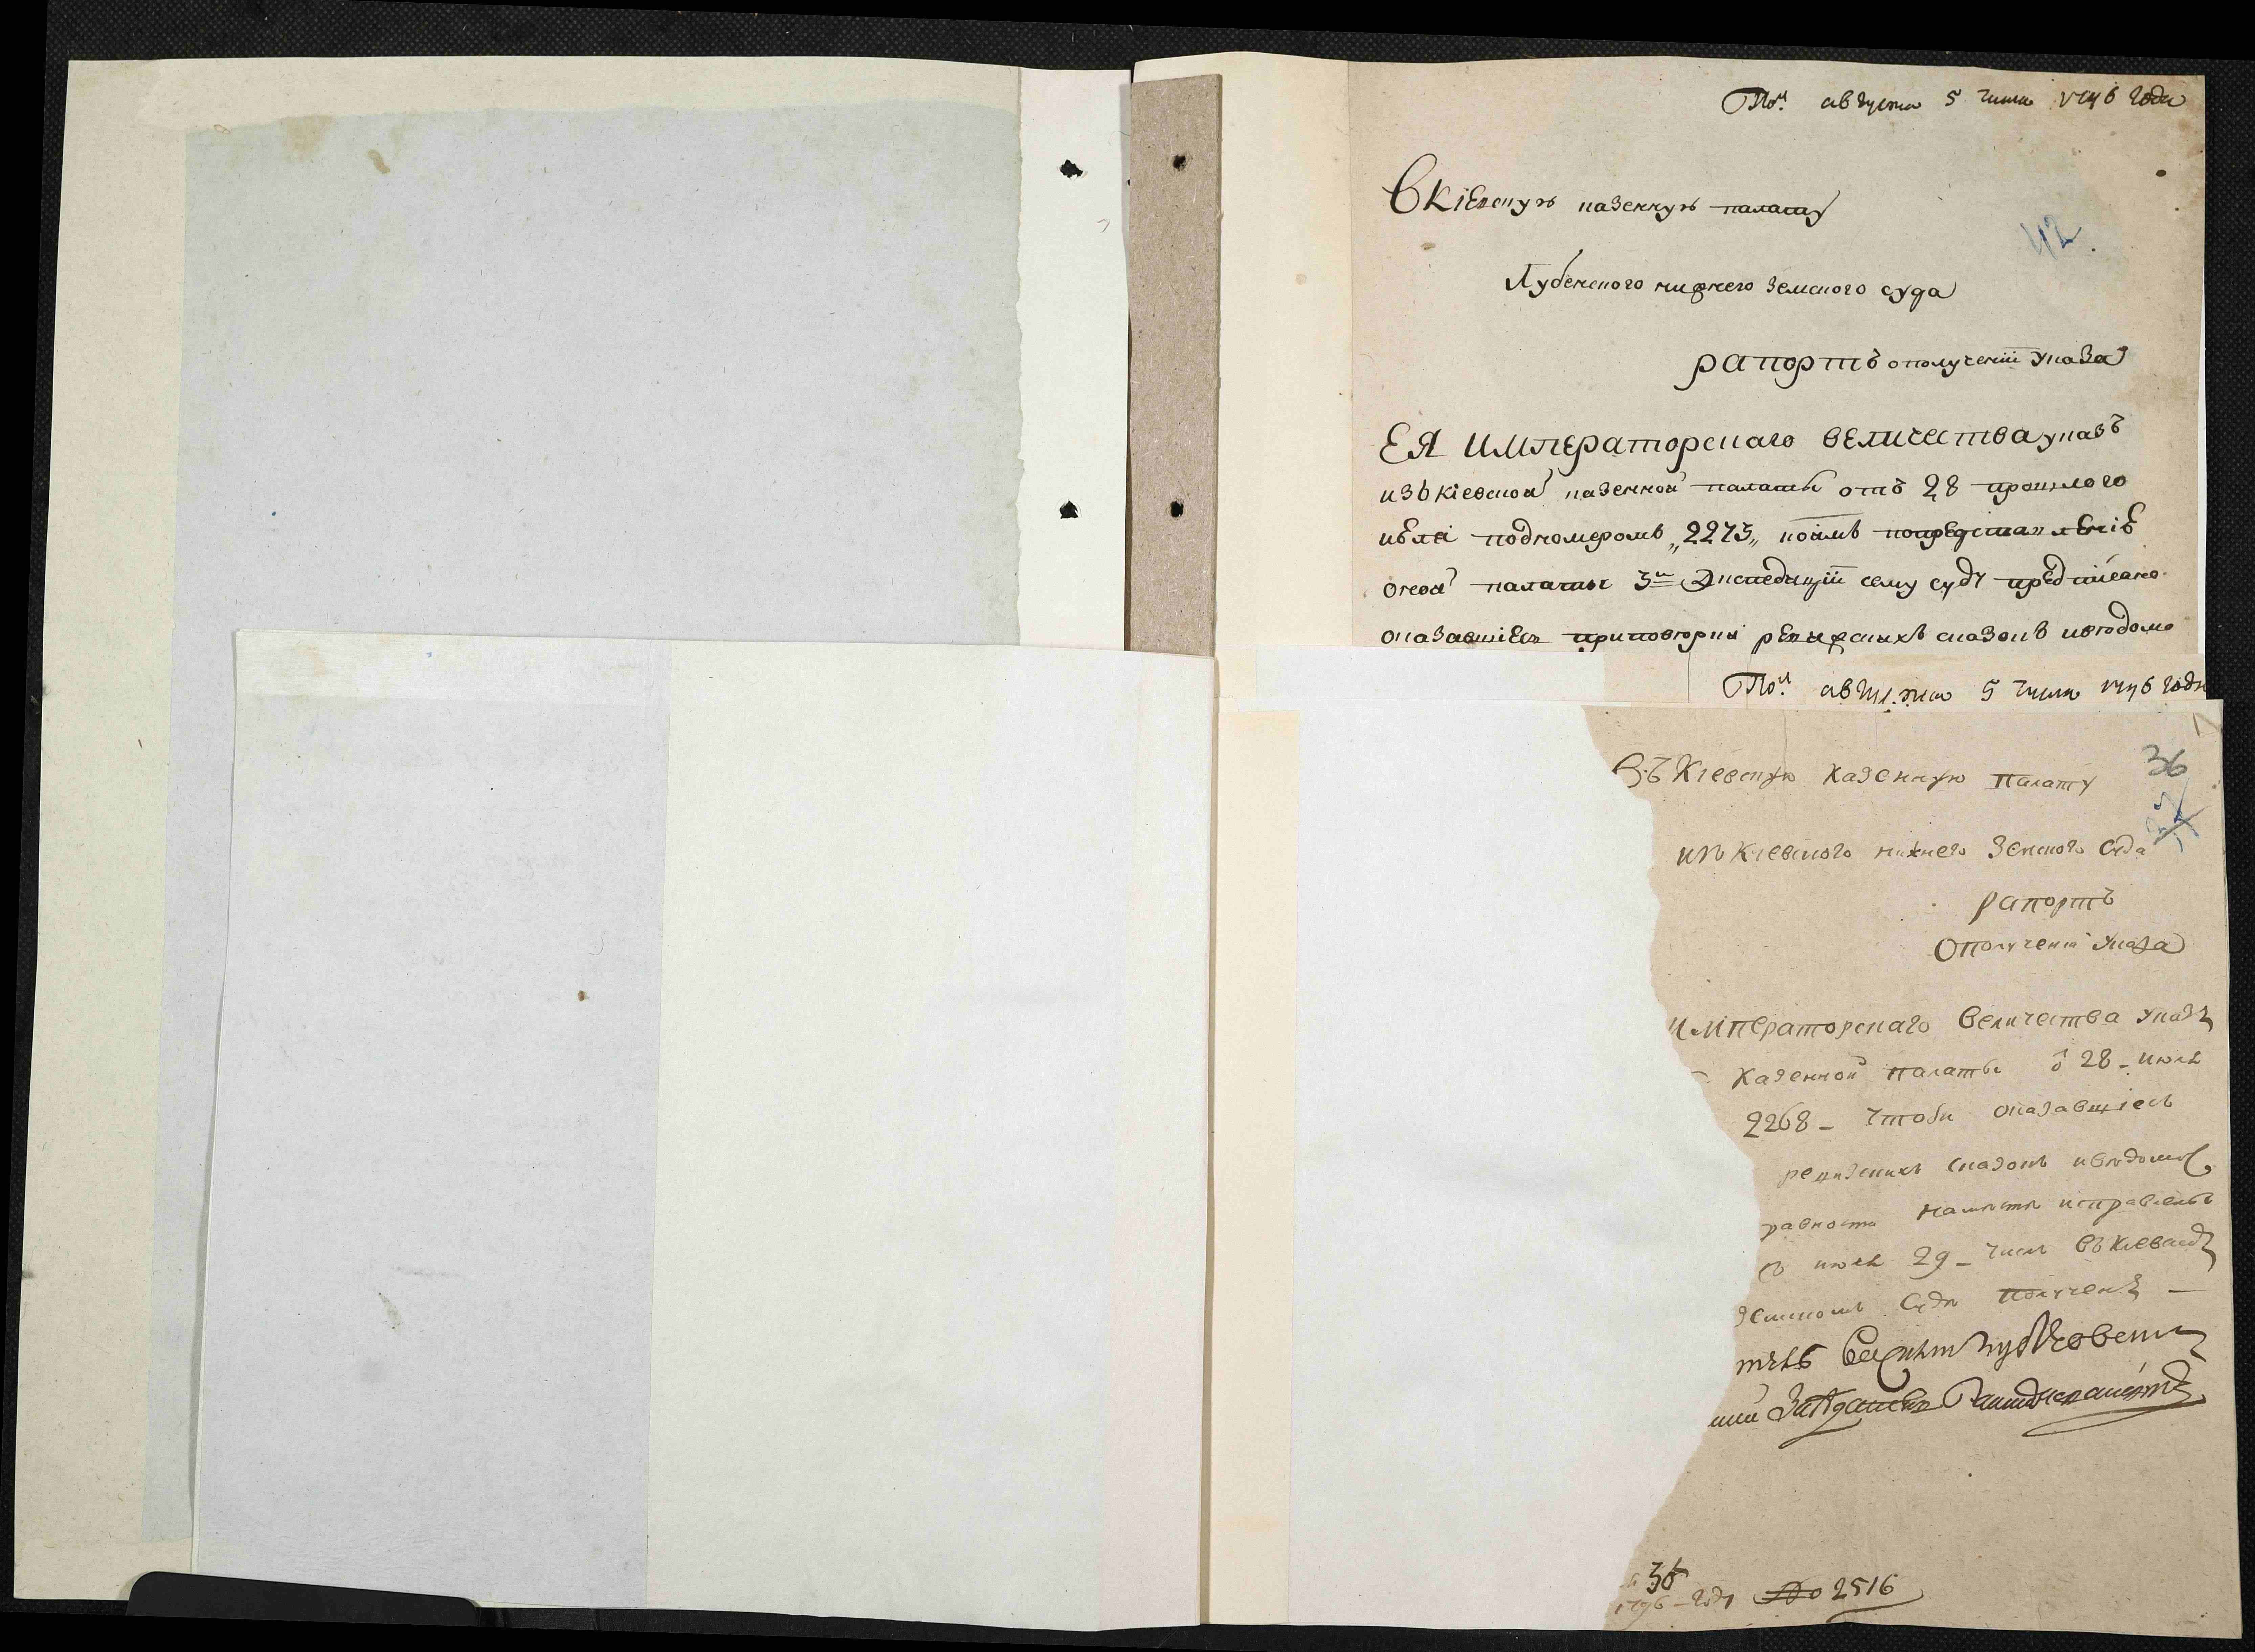 Пол. августа 5 числа 1796 года
В Кіевскую казенную палату
42.
Лубенского нижнего земского суда
рапортъ о полученіи указа
ЕЯ ИМПЕРАТОРСКАГО ВЕЛИЧЕСТВА указъ
изъ кіевской казенной палаты отъ 28 прошлого
июля под номеромъ „2273„ коимъ по представленіе
оной палаты 3й Экспедиціи сему суду предписано
оказавшіесь при повторкі ревизскихъ сказокъ и ведомо
Пол. августа 5 числа 1796 года
Въ Кіевскую казенную палату
36
изъ Кіевского нижнего земского суда
рапортъ
О полученіи указа
ИМПЕРАТОРСКАГО Величества указъ
казенной палаты о 28 - июля
2268 - чтоби оказавшіесь
ревизскихъ сказокъ и ведомос
равности на местѣ исправлены
июля 29 - числа въ Кіевск
земскомъ суде полученъ -
36
1796 - году № 2516